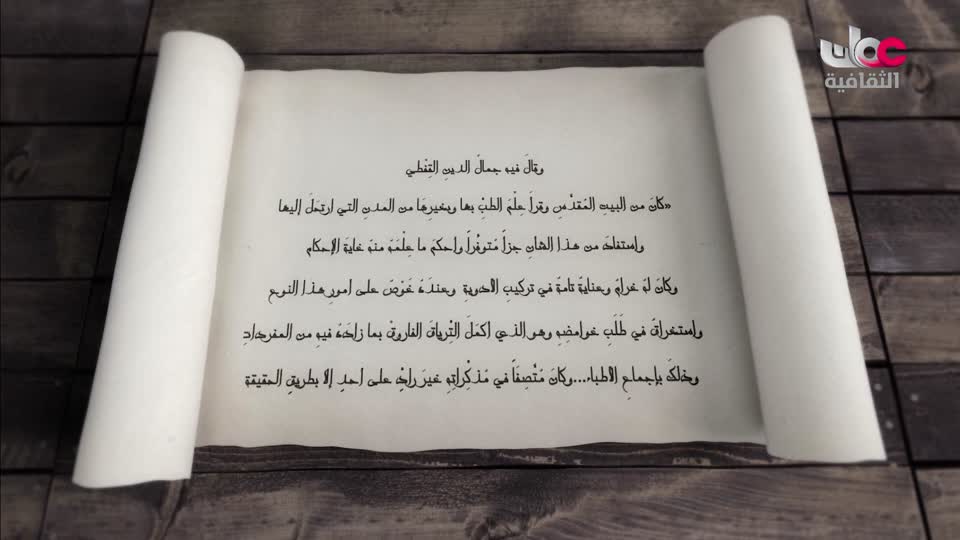 عمان
الثقافية
وقالَ فيه جمالُ الدينِ القِفْطي
«كانَ من البيت المُقدْسِ وقرأ عِلْمَ الطبْ بها وبغيرِها من المدنِ التي ارتحلَ إليها
واستفادَ من هذا الشانِ جزأً مُتوفْراً واحكمَ ما عِلْمَهُ منهُ غايةَ الإحكام
وكانَ لهُ غرامٌ وعنايةٌ تامةٌ في تركيبِ الأدويةِ وعندَهُ غَوْصٌ على امورِ هذا النوع
واستغراقٌ في طَلَبِ غوامضِهِ وهو الذي اكملَ التْرياقَ الفاروقَ بما زادَهُ فيهِ من المفرداتِ
وذلكَ بإجماعِ الأطباء...وكانَ مُنْصِفاً في مُذكِراتِهِ غيرَ رادْ على احدٍ إلا بطريقِ الحقيقةِ